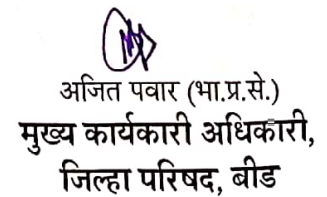 अजित पवार (भा.प्र.से.)
मुख्य कार्यकारी अधिकारी,
जिल्हा परिषद, बीड